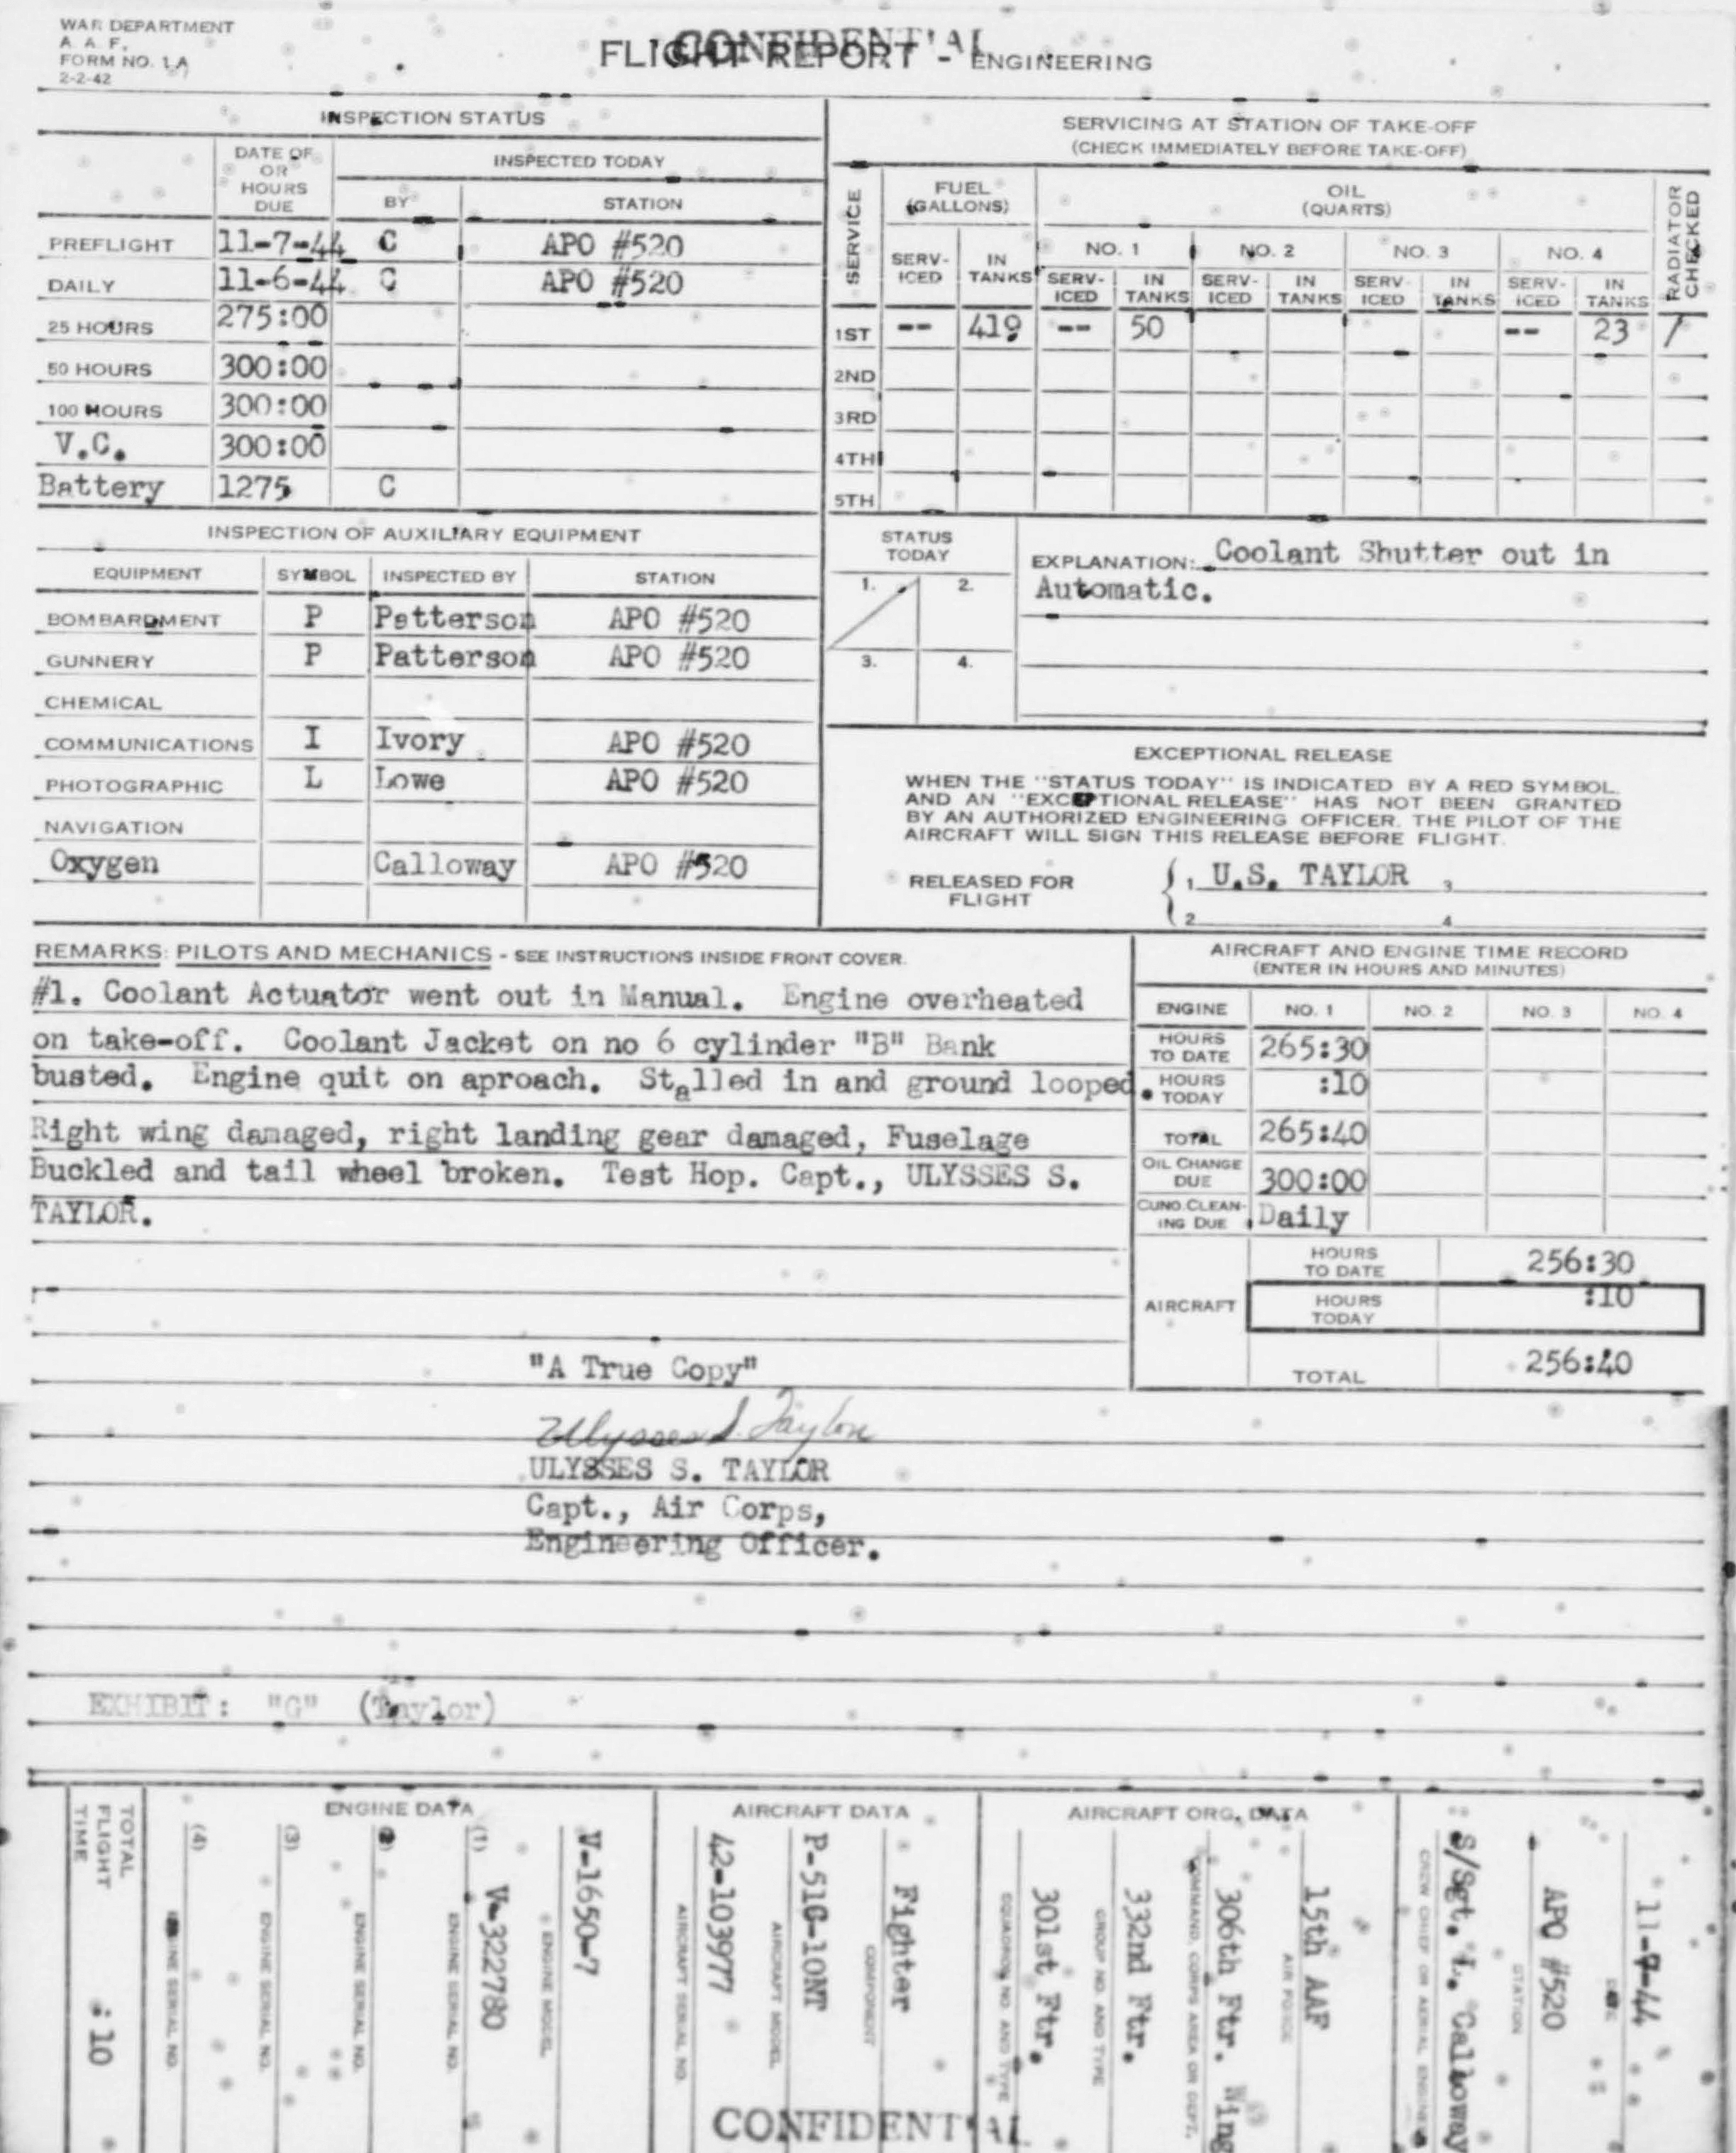 WAR DEPARTMENT
A. A. F.
FORM NO. 1A
2-2-42
CONFIDENTIAL
FLIGHT REPORT - ENGINEERING
INSPECTION STATUS
DATE OF OR HOURS DUE
INSPECTED TODAY
BY STATION
PREFLIGHT 11-7-44 C APO #520
DAILY 11-6-44 C APO #520
25 HOURS 275:00
50 HOURS 300:00
100 HOURS 300:00
V.C. 300:00
Battery 1275 C
SERVICING AT STATION OF TAKE-OFF
(CHECK IMMEDIATELY BEFORE TAKE-OFF)
SERVICE
FUEL (GALLONS)
OIL (QUARTS)
RADIATOR CHECKED
NO. 1 NO. 2 NO. 3 NO. 4
SERV-ICED IN TANKS SERV-ICED IN TANKS SERV-ICED IN TANKS SERV-ICED IN TANKS SERV-ICED IN TANKS
1ST -- 419 -- 50 -- 23 /
2ND
3RD
4TH
5TH
INSPECTION OF AUXILIARY EQUIPMENT
EQUIPMENT SYMBOL INSPECTED BY STATION
BOMBARDMENT P Patterson APO #520
GUNNERY P Patterson APO #520
CHEMICAL
COMMUNICATIONS I Ivory APO #520
PHOTOGRAPHIC L Lowe APO #520
NAVIGATION
Oxygen Calloway APO #520
STATUS TODAY
1. 2.
3. 4.
EXPLANATION: Coolant Shutter out in
Automatic.
EXCEPTIONAL RELEASE
WHEN THE "STATUS TODAY" IS INDICATED BY A RED SYMBOL
AND AN "EXCEPTIONAL RELEASE" HAS NOT BEEN GRANTED
BY AN AUTHORIZED ENGINEERING OFFICER. THE PILOT OF THE
AIRCRAFT WILL SIGN THIS RELEASE BEFORE FLIGHT.
RELEASED FOR FLIGHT
1 U.S. TAYLOR 3
2 4
REMARKS: PILOTS AND MECHANICS - SEE INSTRUCTIONS INSIDE FRONT COVER.
#1. Coolant Actuator went out in Manual. Engine overheated
on take-off. Coolant Jacket on no 6 cylinder "B" Bank
busted. Engine quit on aproach. Stalled in and ground looped.
Right wing damaged, right landing gear damaged, Fuselage
Buckled and tail wheel broken. Test Hop. Capt., ULYSSES S.
TAYLOR.
AIRCRAFT AND ENGINE TIME RECORD
(ENTER IN HOURS AND MINUTES)
ENGINE NO. 1 NO. 2 NO. 3 NO. 4
HOURS TO DATE 265:30
HOURS TODAY :10
TOTAL 265:40
OIL CHANGE DUE 300:00
CUNO.CLEAN-ING DUE Daily
AIRCRAFT
HOURS TO DATE 256:30
HOURS TODAY :10
TOTAL 256:40
"A True Copy"
Ulysses S. Taylor
ULYSSES S. TAYLOR
Capt., Air Corps,
Engineering Officer.
EXHIBIT: "G" (Taylor)
TOTAL FLIGHT TIME :10
ENGINE DATA
(4) ENGINE SERIAL NO.
(3) ENGINE SERIAL NO.
(2) ENGINE SERIAL NO.
(1) V-322780 ENGINE SERIAL NO.
V-1650-7 ENGINE MODEL
AIRCRAFT DATA
42-1039777 AIRCRAFT SERIAL NO.
P-51C-10NT AIRCRAFT MODEL
Fighter COMPONENT
AIRCRAFT ORG. DATA
301st Ftr. SQUADRON NO. AND TYPE
332nd Ftr. GROUP NO. AND TYPE
306th Ftr. Wing COMMAND, CORPS AREA OR DEPT.
15th AAF AIR FORCE
S/Sgt. L. Calloway CREW CHIEF OR AERIAL ENGINEER
APO #520 STATION
11-7-44 DATE
CONFIDENTIAL